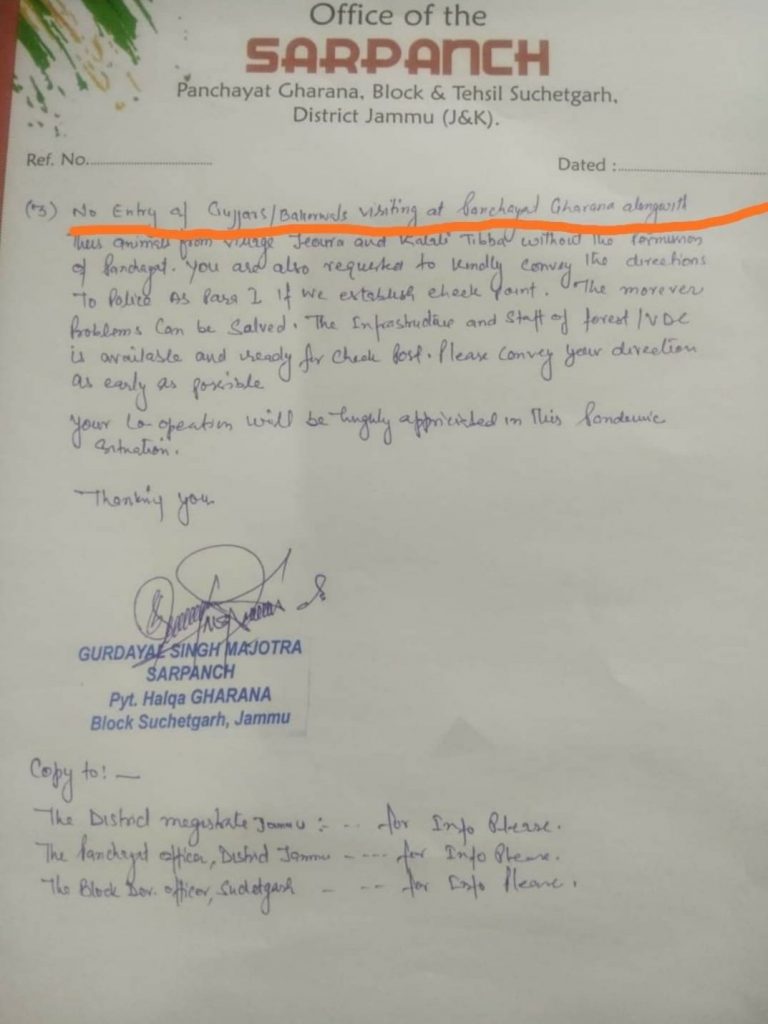 Office of the
SARPANCH
Panchayat Gharana, Block & Tehsil Suchetgarh,
District Jammu (J&K).
Ref. No.................................... Dated :....................................
(*3) No Entry of Gujjars/Bakerwals visiting at Panchayat Gharana alongwith
animals from village and Kalali Tibba without the Permission
of Panchayat. You are also requested to kindly convey the directions
To Police As Para 1 If we establish check Point. The morever
Problems Can be Salved. The Infrastructure and Staff of forest/VDC
is available and ready for Check Post. Please Convey your direction
as early as possible
your Co-operation will be highly appriciated in This Pandemic
Situation.
Thanking you
GURDAYAL SINGH MAJOTRA
SARPANCH
Pyt. Halqa GHARANA
Block Suchetgarh, Jammu
Copy to:—
The District megistrate Jammu :- -- for Info Please.
The Panchayat officer, District Jammu - --- for Info Please.
The Block Dev. officer, Suchetgarh - -- for Info Please.